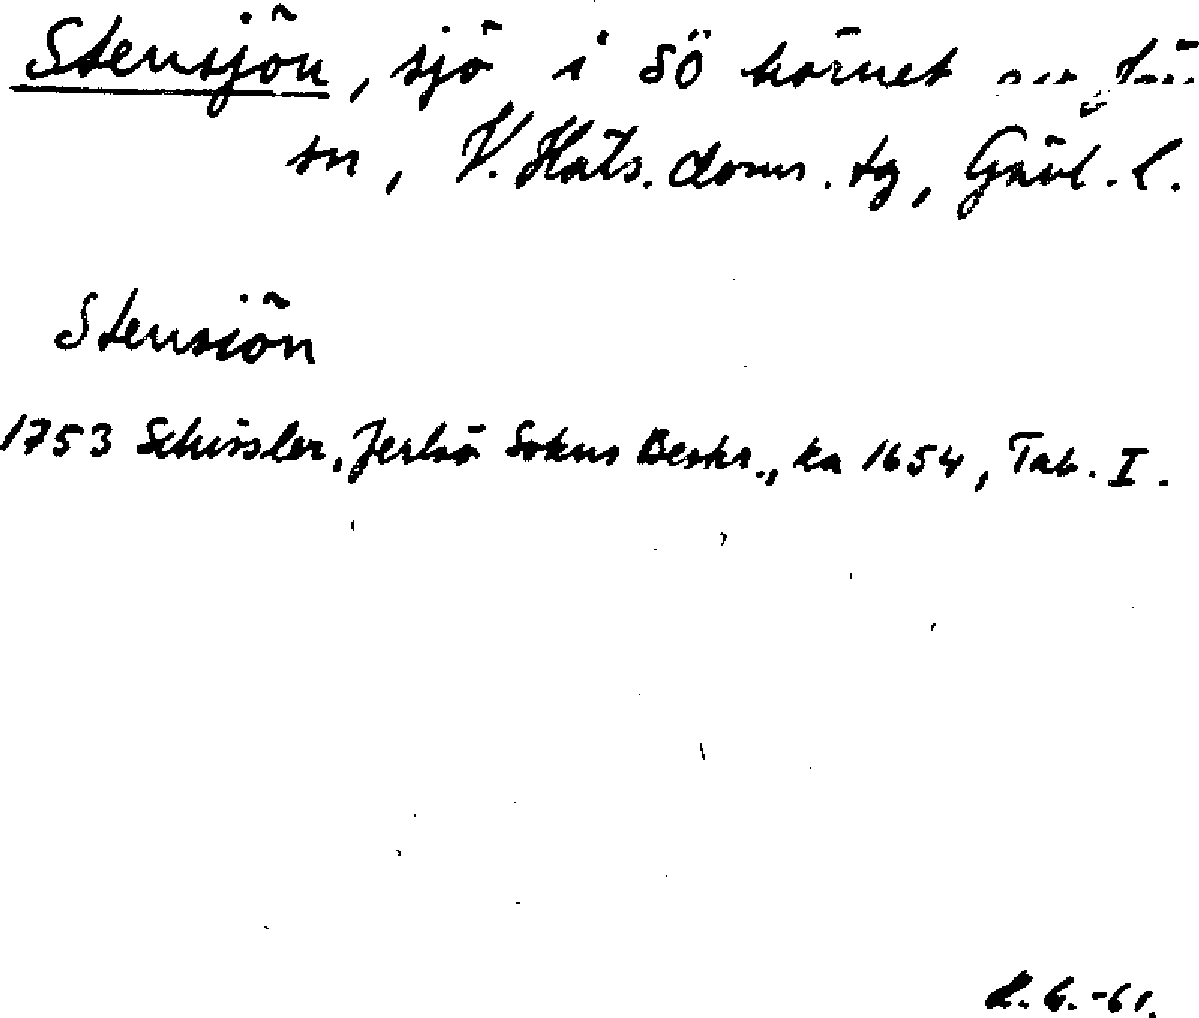 Stensjön, sjö i SÖ hörnet av
sn, V. Häls. doms. tg, Gävl. l.
Stensiön
1753 Schissler, Jerfsö Sokns Beskr., ka 1654, Tab. I.
-61.